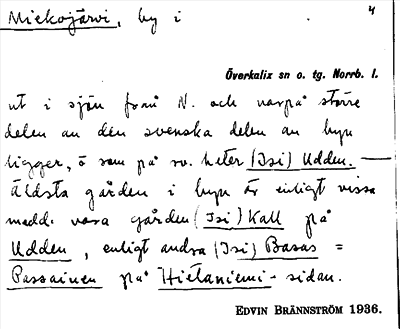 Miekojärvi, by i 4
Överkalix sn o. tg. Norrb. l.
ut i sjön från N. och varpå större
delen av den svenska delen av byn
ligger, ö som på sv. heter (Isi) Udden. —
Äldsta gården i byn är enligt vissa
medd. vara gården (Isi) Kall på
Udden, enligt andra (Isi) Basas =
Passainen på Hietaniemi-sidan.
EDVIN BRÄNNSTRÖM 1936.